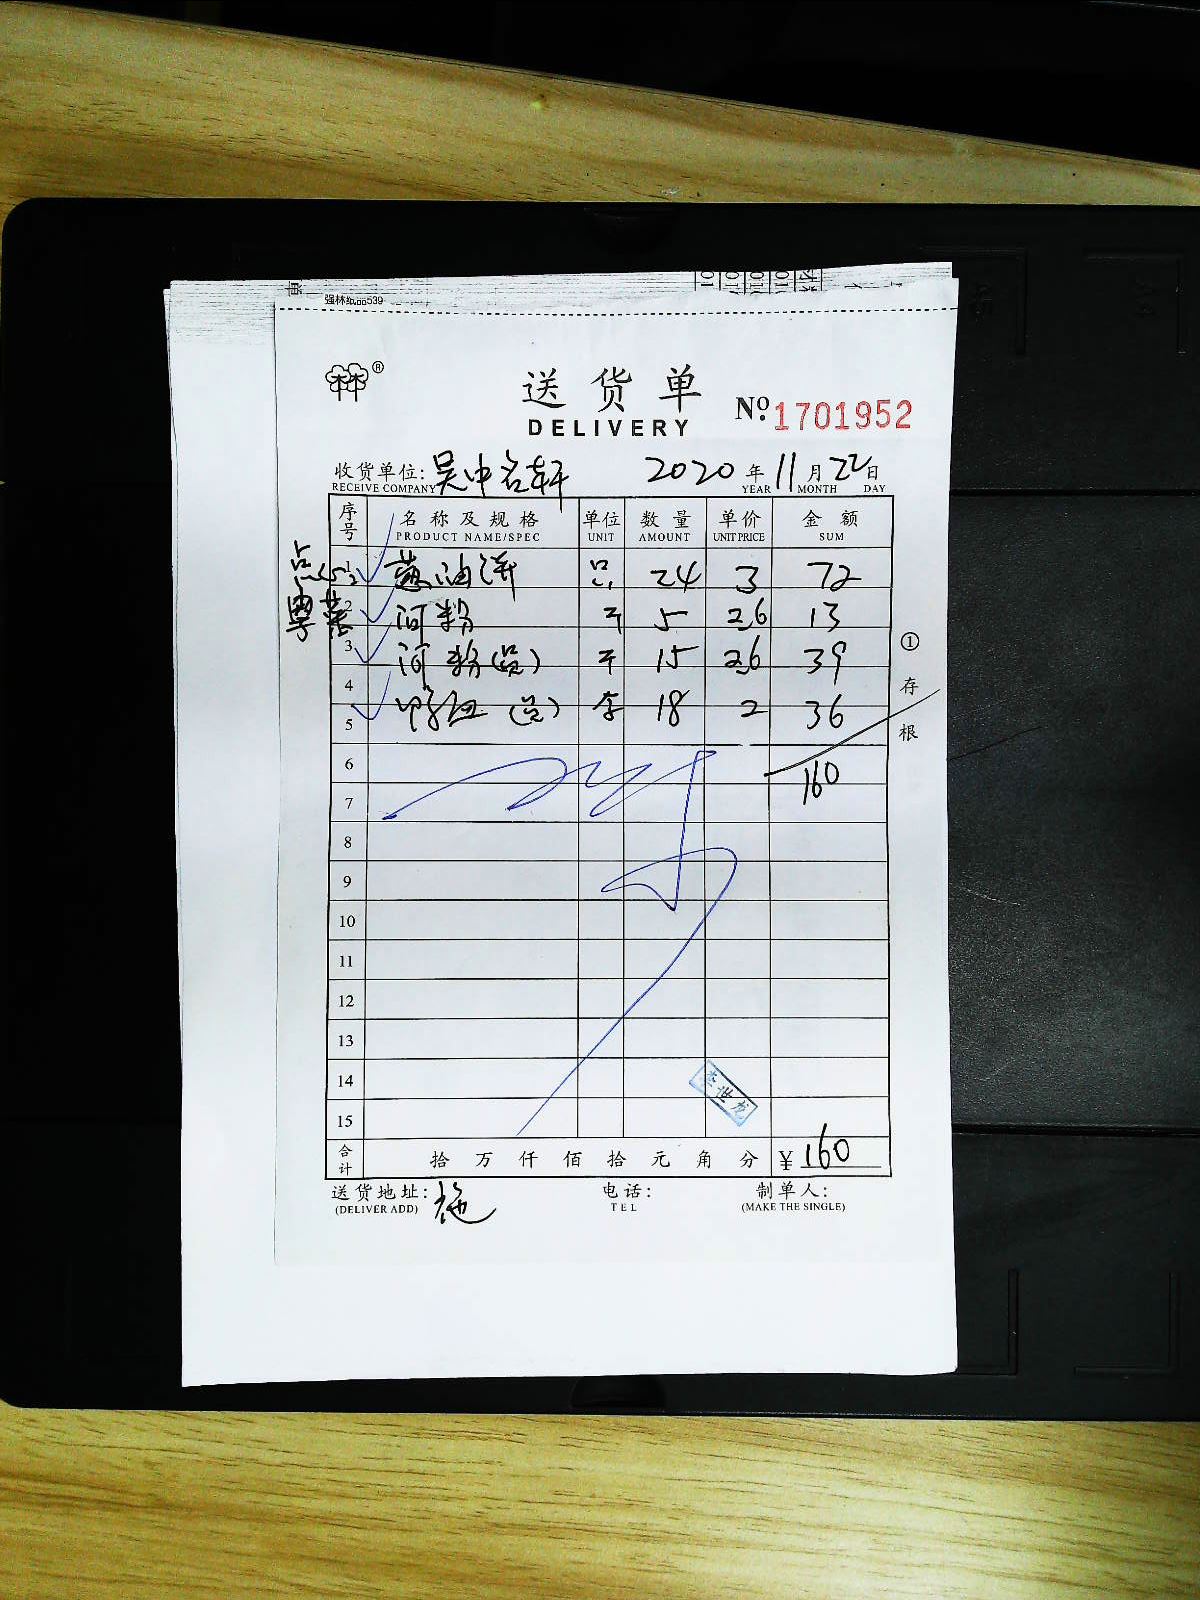 强林纸品539
送货单
DELIVERY
№ 1701952
收货单位: 吴中名轩 2020年11月22日
RECEIVE COMPANY YEAR MONTH DAY
序号 名称及规格 单位 数量 单价 金额
PRODUCT NAME/SPEC UNIT AMOUNT UNIT PRICE SUM
点心 1 葱油饼 只 24 3 72
粤菜 2 河粉 斤 5 2.6 13
3 河粉(员) 斤 15 2.6 39
4 鸭血(员) 18 2 36
5
6 160
7
8
9
10
11
12
13
14
李世龙
15
合计 拾万仟佰拾元角分 ¥160
送货地址: 施 电话: 制单人:
(DELIVER ADD) TEL (MAKE THE SINGLE)
①存根